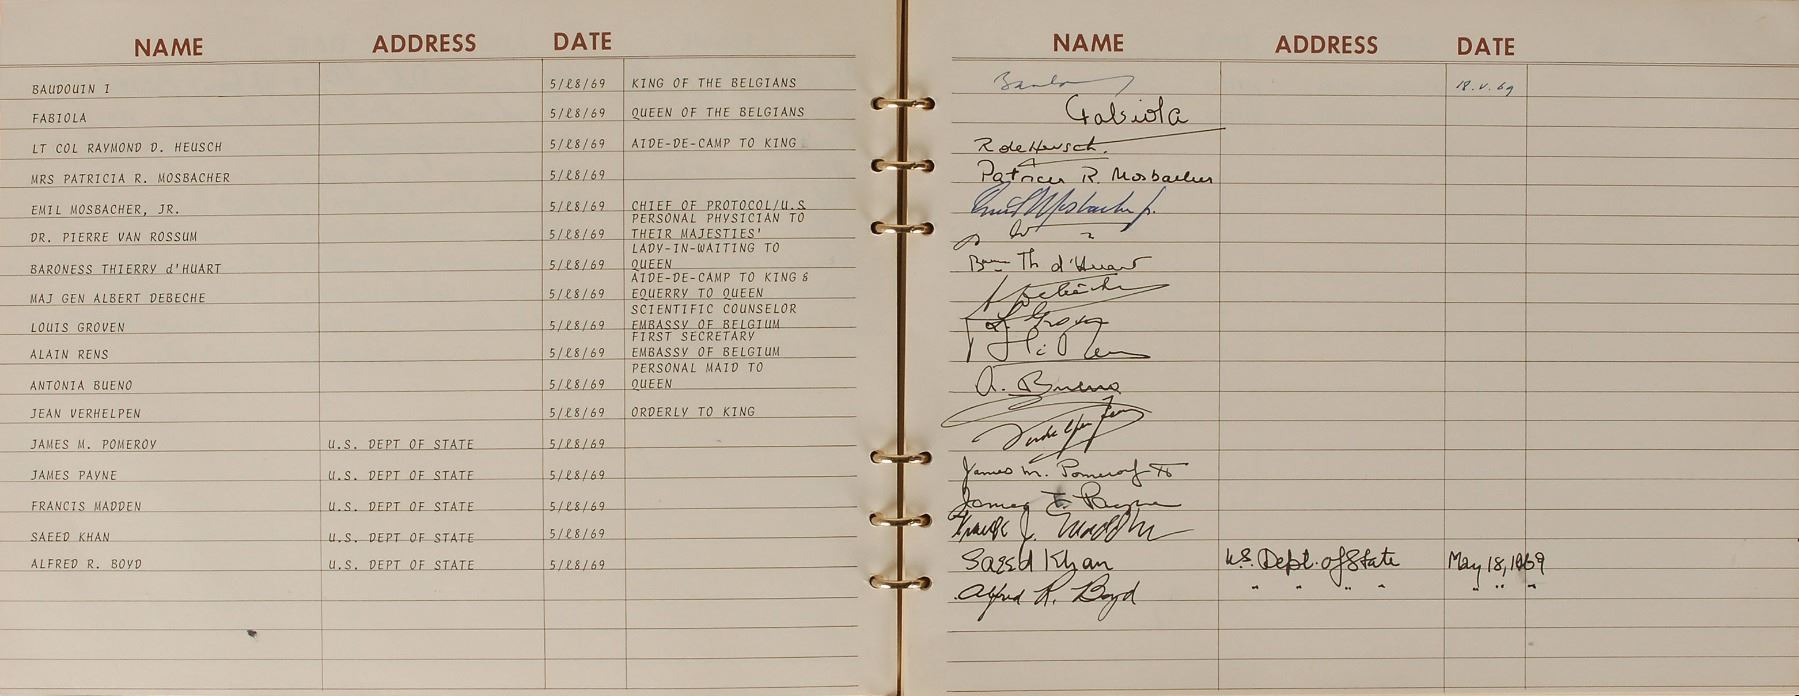 NAME ADDRESS DATE
BAUDOUIN I 5/18/69 KING OF THE BELGIANS
FABIOLA 5/18/69 QUEEN OF THE BELGIANS
LT COL RAYMOND D. HEUSCH 5/18/69 AIDE-DE-CAMP TO KING
MRS PATRICIA R. MOSBACHER 5/18/69
EMIL MOSBACHER, JR. 5/18/69 CHIEF OF PROTOCOL/U.S
PERSONAL PHYSICIAN TO
DR. PIERRE VAN ROSSUM 5/18/69 THEIR MAJESTIES'
LADY-IN-WAITING TO
BARONESS THIERRY d'HUART 5/18/69 QUEEN
AIDE-DE-CAMP TO KING &
MAJ GEN ALBERT DEBECHE 5/18/69 EQUERRY TO QUEEN
SCIENTIFIC COUNSELOR
LOUIS GROVEN 5/18/69 EMBASSY OF BELGIUM
FIRST SECRETARY
ALAIN RENS 5/18/69 EMBASSY OF BELGIUM
PERSONAL MAID TO
ANTONIA BUENO 5/18/69 QUEEN
JEAN VERHELPEN 5/18/69 ORDERLY TO KING
JAMES M. POMEROY U.S. DEPT OF STATE 5/18/69
JAMES PAYNE U.S. DEPT OF STATE 5/18/69
FRANCIS MADDEN U.S. DEPT OF STATE 5/18/69
SAEED KHAN U.S. DEPT OF STATE 5/18/69
ALFRED R. BOYD U.S. DEPT OF STATE 5/18/69
NAME ADDRESS DATE
18.V.69
Fabiola
R de Heusch.
Patricia R. Mosbacher
Emil Mosbacher Jr.
Th d'Huart
A. Bueno
James M. Pomeroy
James E Payne
Frank J. Madden
Saeed Khan U.S. Dept. of State May 18, 1969
Alfred R. Boyd " " " " " " "